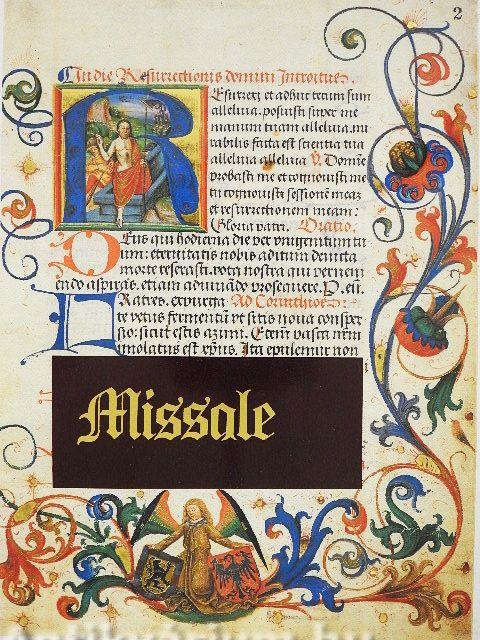 2
In die Resurrectionis domini Introitus.
Resurrexi et adhuc tecum sum
alleluia. posuisti super me
manum tuam alleluia. mi
rabilis facta est scientia tua
alleluia alleluia V. Domine
probasti me et cognouisti me
tu cognouisti sessionem meam
et resurrectionem meam:
Gloria patri. Oratio.
Deus qui hodierna die per vnigenitum tu
um: eternitatis nobis aditum deuicta
morte reserasti. vota nostra que preueni
endo aspiras. etiam adiuuando prosequere. P. eu.
Fratres. expurga Ad Corinthios
te vetus fermentum vt sitis noua consper
sio: sicut estis azimi. Etenim pasca nrm
immolatus est xpus. Ita epulemur non
Missale